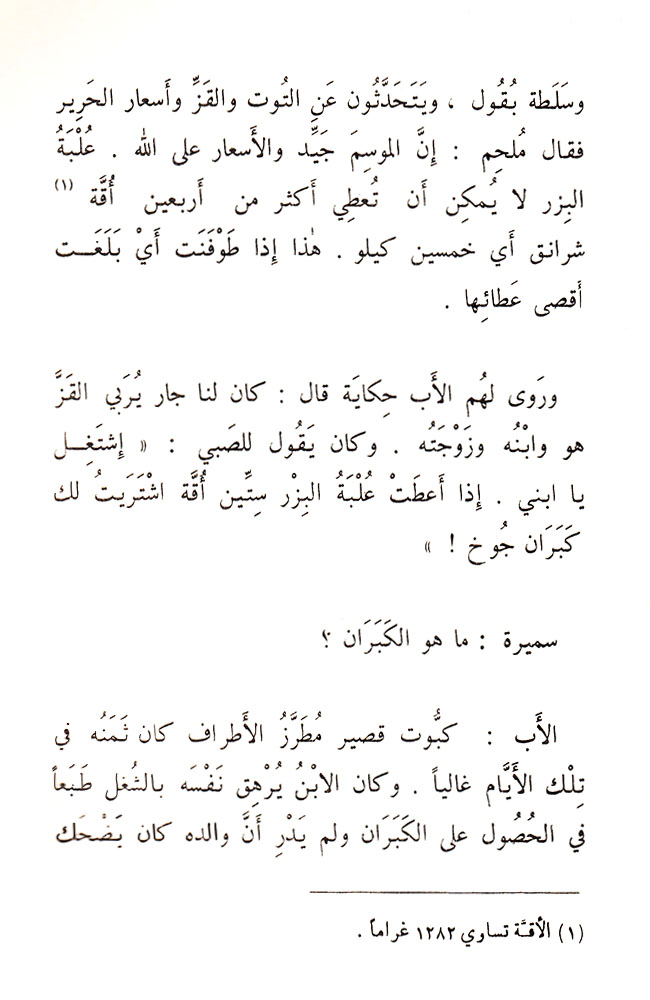 وسَلَطة بُقُول ، ويَتَحَدَّثُون عَنِ التُوت والقَزِّ وأَسعار الحَرِير
فقال مُلحِم : إِنَّ الموسِمَ جَيِّد والأَسعار على الله . عُلْبَةُ
البِزر لا يُمكِن أَن تُعطِي أَكثر من أَربعين أُقَّة (١)
شرانق أَي خمسين كيلو . هٰذا إِذا طَوْفَنَت أَيْ بَلَغَــت
أَقصى عَطائِها .
ورَوى لهُم الأَب حِكايَة قال : كان لنا جار يُرَبي القَزَّ
هو وابْنُه وزَوْجَتُه . وكان يَقُول للصَبي : « إِشتَغِــل
يا ابني . إِذا أَعطَتْ عُلْبَةُ البِزْر سِتِّين أُقَّة اشْتَرَيتُ لك
كَبَرَان جُوخ ! »
سميرة : ما هو الكَبَرَان ؟
الأَب : كبُّوت قصير مُطَرَّزُ الأَطراف كان ثَمَنُه في
تِلْك الأَيَّام غالياً . وكان الابْنُ يُرْهِق نَفْسَه بالشُغل طَبَعاً
في الحُصُول على الكَبَرَان ولم يَدْرِ أَنَّ والده كان يَضْحَك
(١) الأقَّة تساوي ١٢٨٢ غراماً .